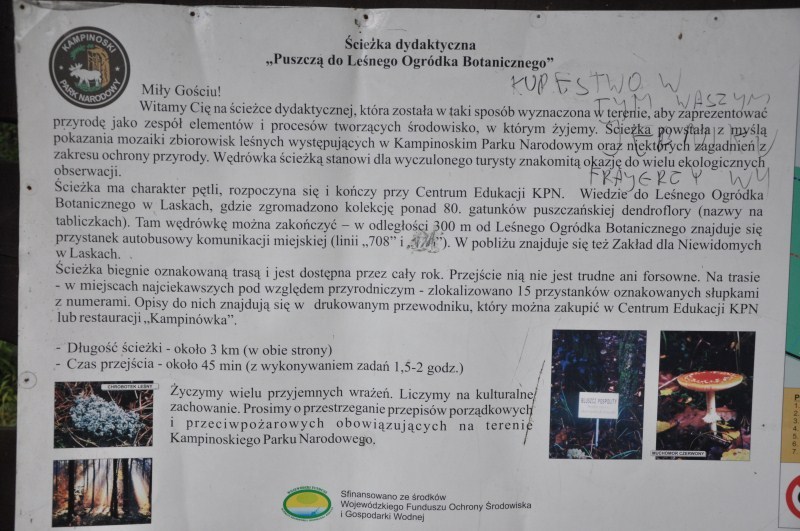 KAMPINOSKI
PARK NARODOWY
Ścieżka dydaktyczna
„Puszczą do Leśnego Ogródka Botanicznego”
Miły Gościu!
Witamy Cię na ścieżce dydaktycznej, która została w taki sposób wyznaczona w terenie, aby zaprezentować
przyrodę jako zespół elementów i procesów tworzących środowisko, w którym żyjemy. Ścieżka powstała z myślą
pokazania mozaiki zbiorowisk leśnych występujących w Kampinoskim Parku Narodowym oraz niektórych zagadnień z
zakresu ochrony przyrody. Wędrówka ścieżką stanowi dla wyczulonego turysty znakomitą okazję do wielu ekologicznych
obserwacji.
Ścieżka ma charakter pętli, rozpoczyna się i kończy przy Centrum Edukacji KPN. Wiedzie do Leśnego Ogródka
Botanicznego w Laskach, gdzie zgromadzono kolekcję ponad 80. gatunków puszczańskiej dendroflory (nazwy na
tabliczkach). Tam wędrówkę można zakończyć – w odległości 300 m od Leśnego Ogródka Botanicznego znajduje się
przystanek autobusowy komunikacji miejskiej (linii „708” i „ ”). W pobliżu znajduje się też Zakład dla Niewidomych
w Laskach.
Ścieżka biegnie oznakowaną trasą i jest dostępna przez cały rok. Przejście nią nie jest trudne ani forsowne. Na trasie
- w miejscach najciekawszych pod względem przyrodniczym - zlokalizowano 15 przystanków oznakowanych słupkami
z numerami. Opisy do nich znajdują się w drukowanym przewodniku, który można zakupić w Centrum Edukacji KPN
lub restauracji „Kampinówka”.
- Długość ścieżki - około 3 km (w obie strony)
- Czas przejścia - około 45 min (z wykonywaniem zadań 1,5-2 godz.)
Życzymy wielu przyjemnych wrażeń. Liczymy na kulturalne
zachowanie. Prosimy o przestrzeganie przepisów porządkowych
i przeciwpożarowych obowiązujących na terenie
Kampinoskiego Parku Narodowego.
CHROBOTEK LEŚNY
MUCHOMOR CZERWONY
Sfinansowano ze środków
Wojewódzkiego Funduszu Ochrony Środowiska
i Gospodarki Wodnej
W
TYM WASZYM
FRAYERZY WY
P
1.
2.
3.
4.
5.
6.
7.